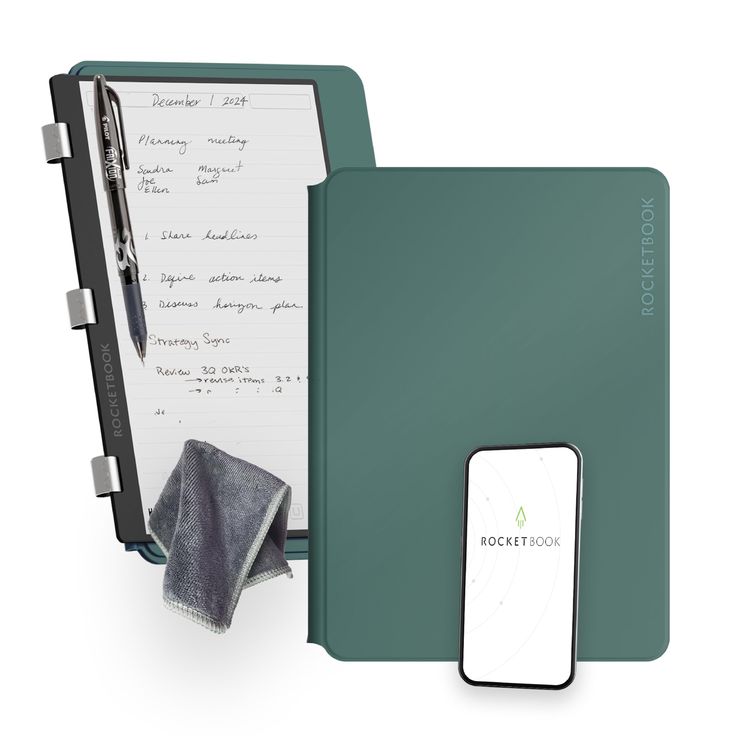 December 1 2024
Planning meeting
Sandra Margaret
Joe Sam
Ellen
1. Share headlines
2. Define action items
3. Discuss horizon plan
Strategy Sync
Review 3Q OKR's
→ revise items 3.2 &
PILOT
FRIXION
ROCKETBOOK
ROCKETBOOK
ROCKETBOOK